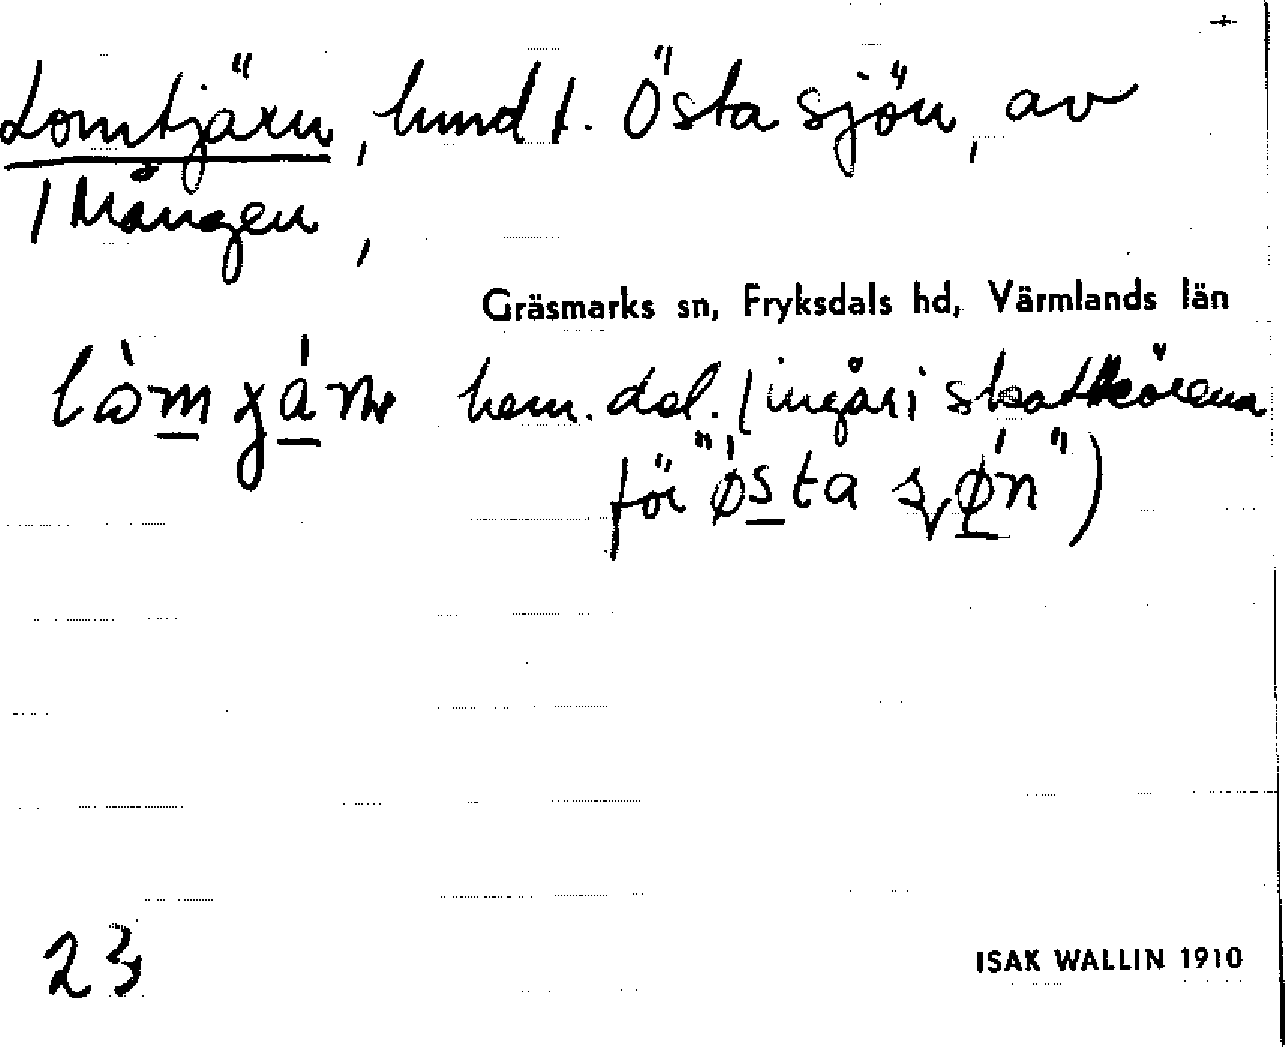 Lomtjärn, hmd t. Östa sjön, av
1 Mången,
Gräsmarks sn, Fryksdals hd, Värmlands län
hem. del. (ingår i skattkörena
för "ǿsta ʂǿn")
23
ISAK WALLIN 1910